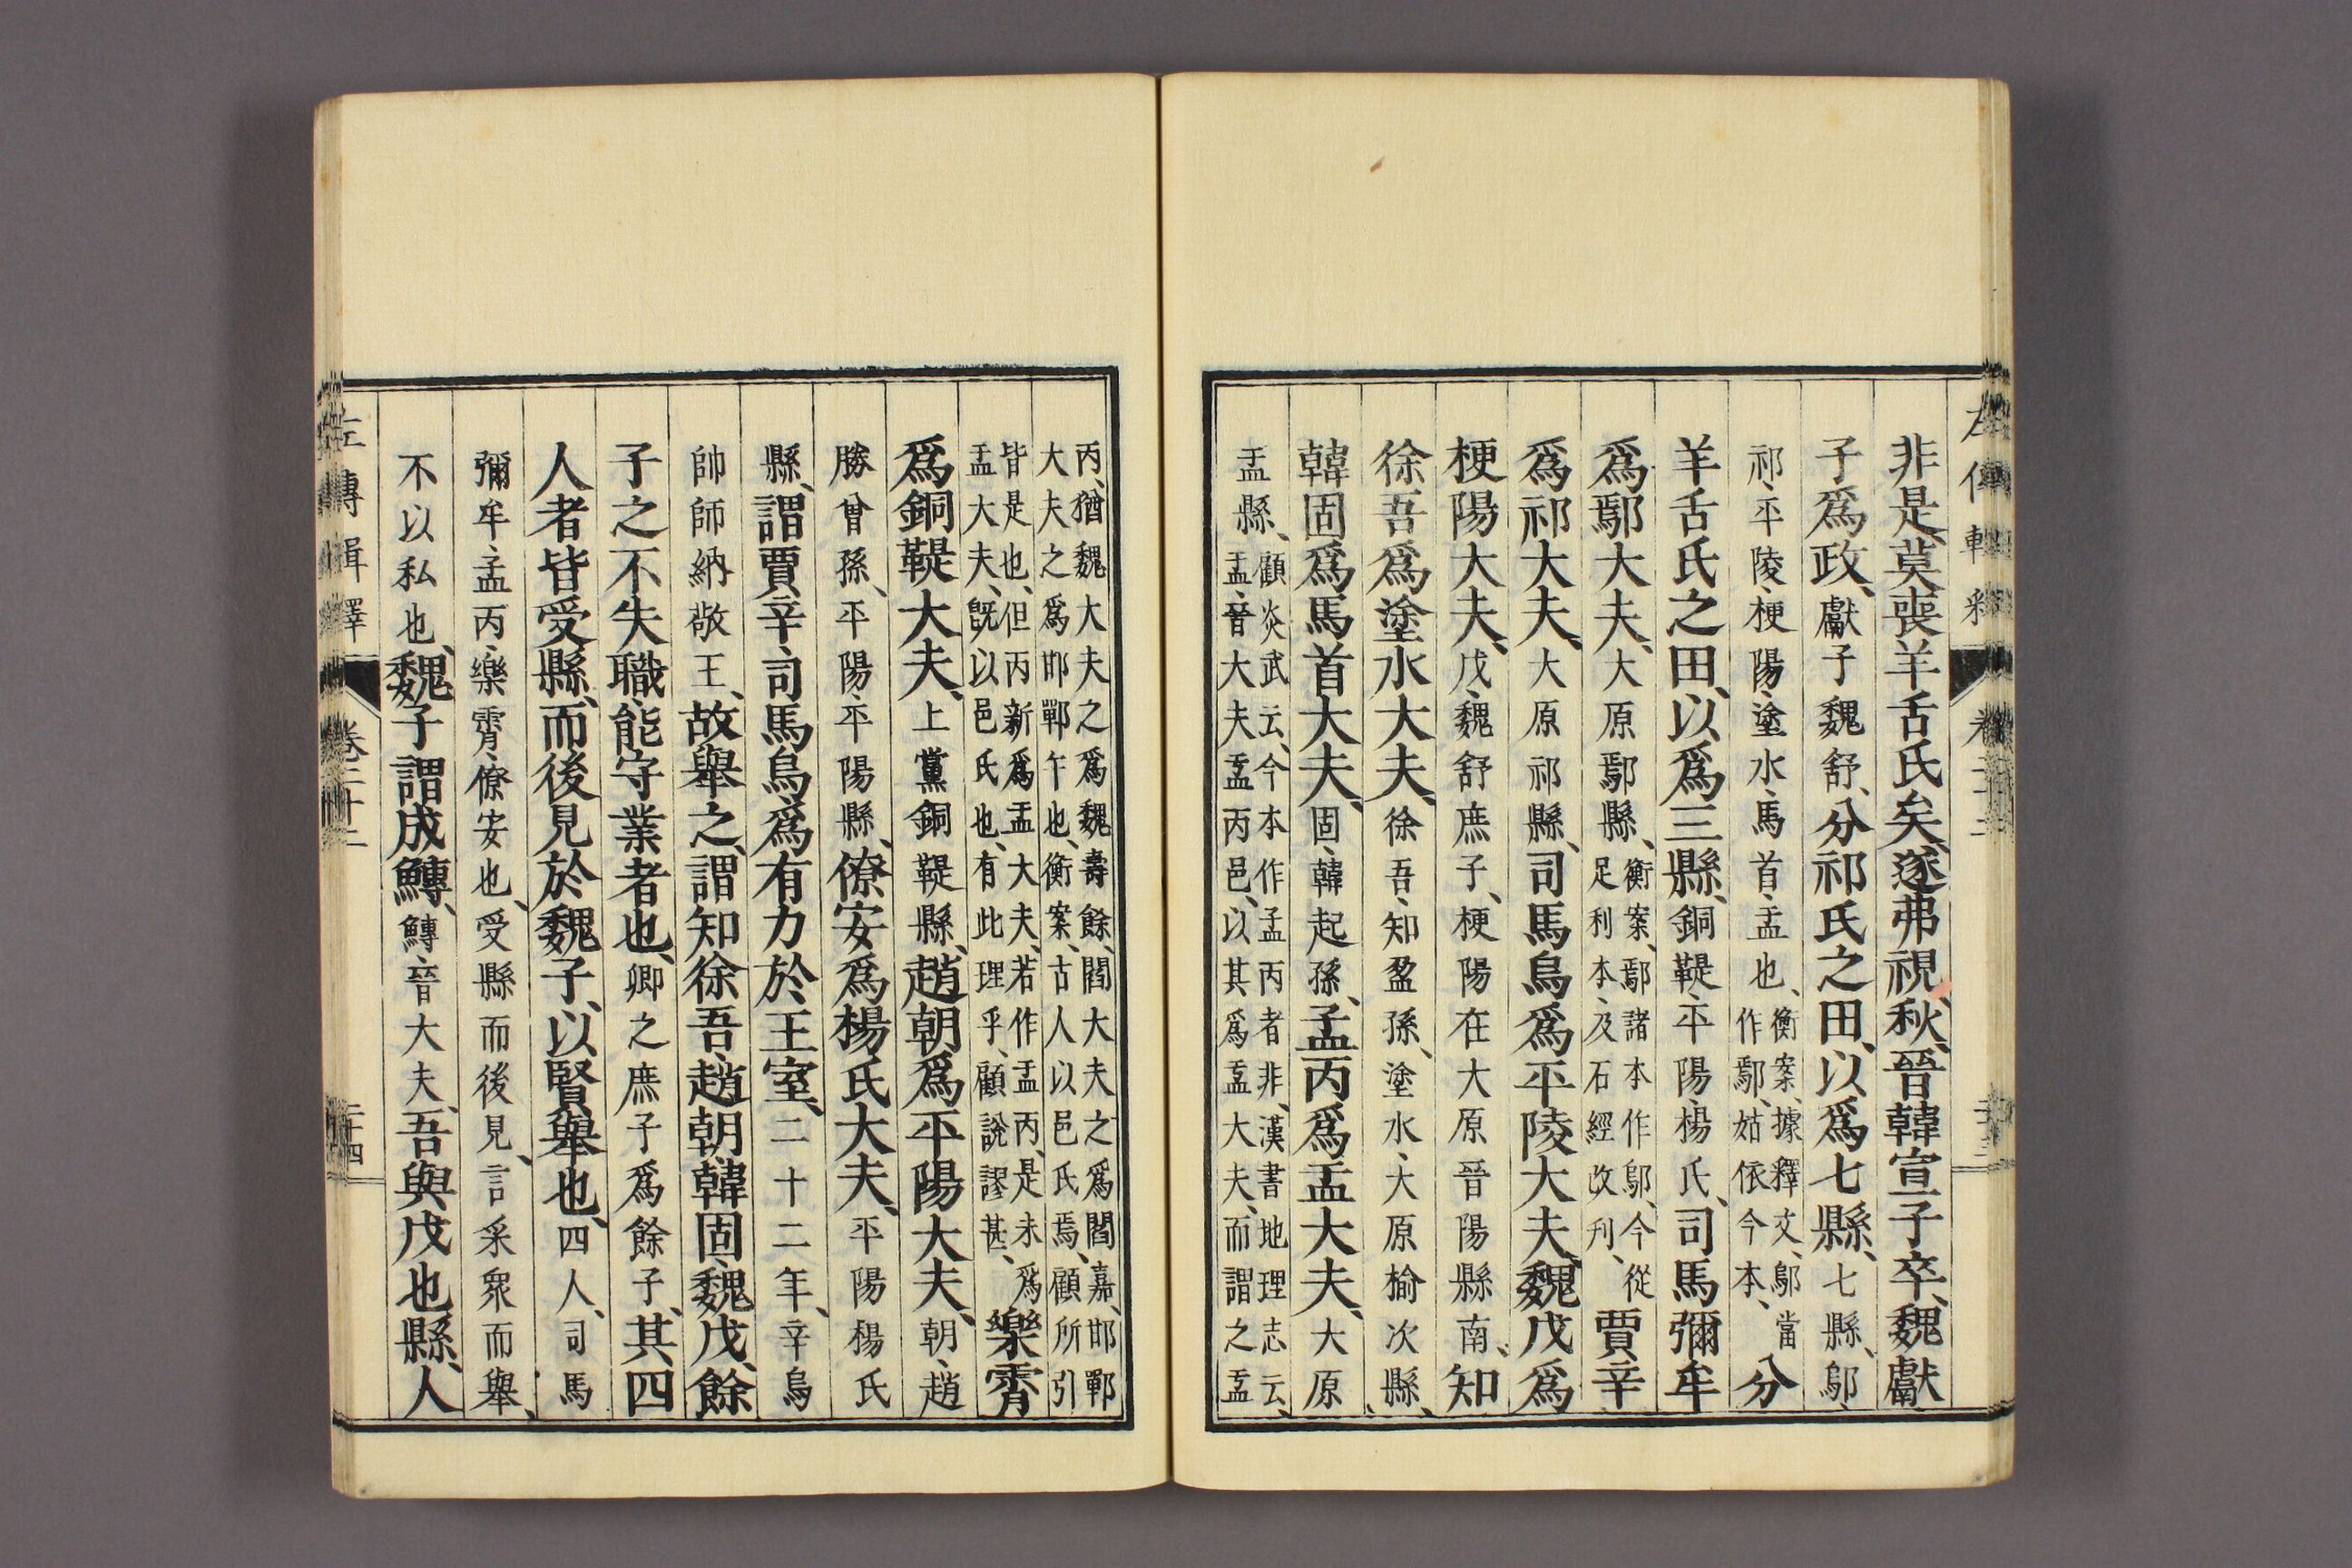 非是、莫喪羊舌氏矣、遂弗視、秋、晉韓宣子卒、魏獻
子爲政、獻子魏舒、分祁氏之田、以爲七縣、七縣、鄔、
祁、平陵、梗陽、塗水、馬首、盂也、衡案、據釋文、鄔當作鄢、姑依今本、分
羊舌氏之田、以爲三縣、銅鞮、平陽、楊氏、司馬彌牟
爲鄢大夫、大原鄢縣、衡案、鄢諸本作鄔、今從足利本、及石經改刋、賈辛
爲祁大夫、大原祁縣、司馬烏爲平陵大夫、魏戊爲
梗陽大夫、戊、魏舒庶子、梗陽在大原晉陽縣南、知
徐吾爲塗水大夫、徐吾、知盈孫、塗水、大原楡次縣、
韓固爲馬首大夫、固、韓起孫、孟丙爲盂大夫、大原
盂縣、顧炎武云、今本作孟丙者非、漢書地理志云、盂、晉大夫盂丙邑、以其爲盂大夫、而謂之盂
丙、猶魏大夫之爲魏壽餘、閻大夫之爲閻嘉、邯鄲
大夫之爲邯鄲午也、衡案、古人以邑氏焉、顧所引
皆是也、但丙新爲盂大夫、若作盂丙、是未爲
盂大夫、旣以邑氏也、有此理乎、顧說謬甚、樂霄
爲銅鞮大夫、上黨銅鞮縣、趙朝爲平陽大夫、朝、趙
勝曾孫、平陽、平陽縣、僚安爲楊氏大夫、平陽楊氏
縣、謂賈辛、司馬烏爲有力於王室、二十二年、辛烏
帥師納敬王、故舉之、謂知徐吾、趙朝、韓固、魏戊、餘
子之不失職、能守業者也、卿之庶子爲餘子、其四
人者皆受縣、而後見於魏子、以賢舉也、四人、司馬
彌牟、孟丙、樂霄、僚安也、受縣而後見、言采衆而舉、
不以私也、魏子謂成鱄、鱄、晉大夫、吾與戊也縣、人
左傳輯釋
卷二十二
二十四